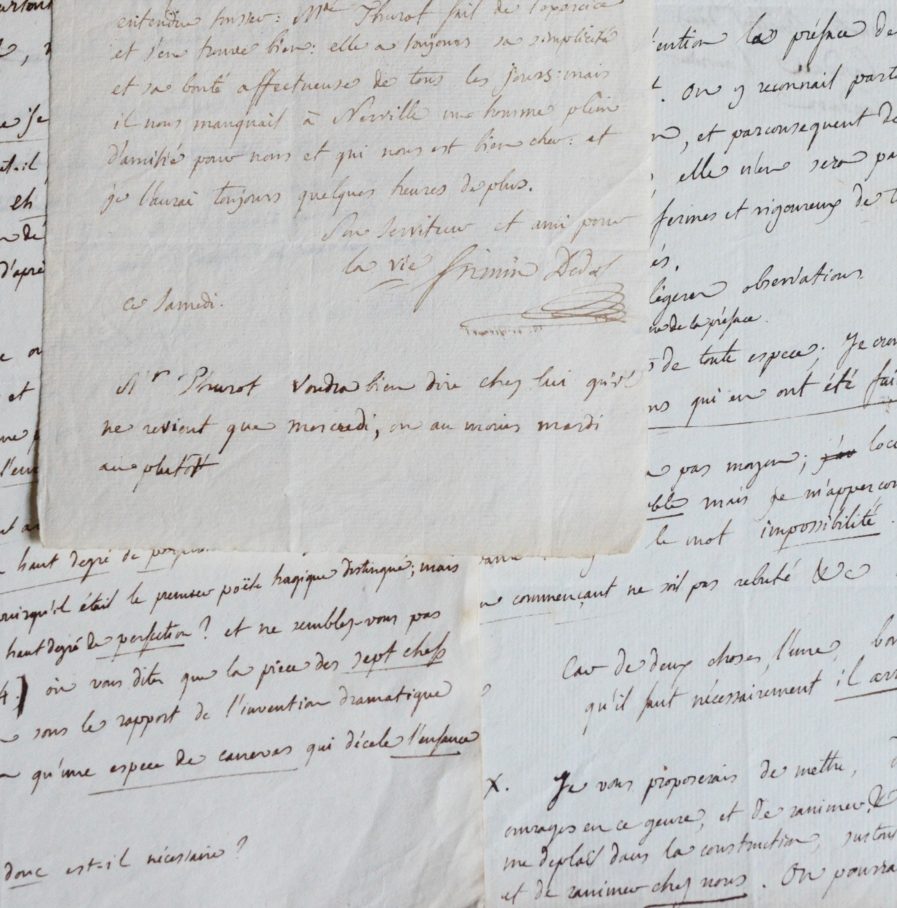 entendre tousser: Mde Thurot fait de l'exercice
et s'en trouve bien: elle a toujours sa simplicité
et sa bonté affectueuse de tous les jours: mais
il nous manquait à Nerville un homme plein
d'amitié pour nous et qui nous est bien cher: et
je l'aurai toujours quelques heures de plus.
Son serviteur et ami pour
la vie Firmin Didot
ce Samedi.
Mr Thurot voudra bien dire chez lui qu'il
ne revient que mercredi, ou au moins mardi
au plutôt
haut degré de
puisqu'il était le premier poëte tragique distingué; mais
haut degré de perfection? et ne semblez-vous pas
4.) où vous dites que la pièce des sept chefs
sous le rapport de l'invention dramatique
qu'une espece de canevas qui décele l'enfance
donc est-il nécessaire?
la préface de
. On y reconnait part
, et parconsequent de
, elle n'en sera pa
fermes et rigoureux de
és.
légeres observations
de la préface.
de toute espece. Je crois
qui en ont été fai
pas moyen; j'ai
mais je m'apperçoi
le mot impossibilité.
commençant ne soit pas rebuté &c
Car de deux choses l'une,
qu'il faut nécessairement il
x. Je vous proposerais de mettre,
ouvrages en ce genre, et de ranimer &
me deplait dans la construction, surtout
et de ranimer chez nous. On pourra
surtout
et
d'après
l'en